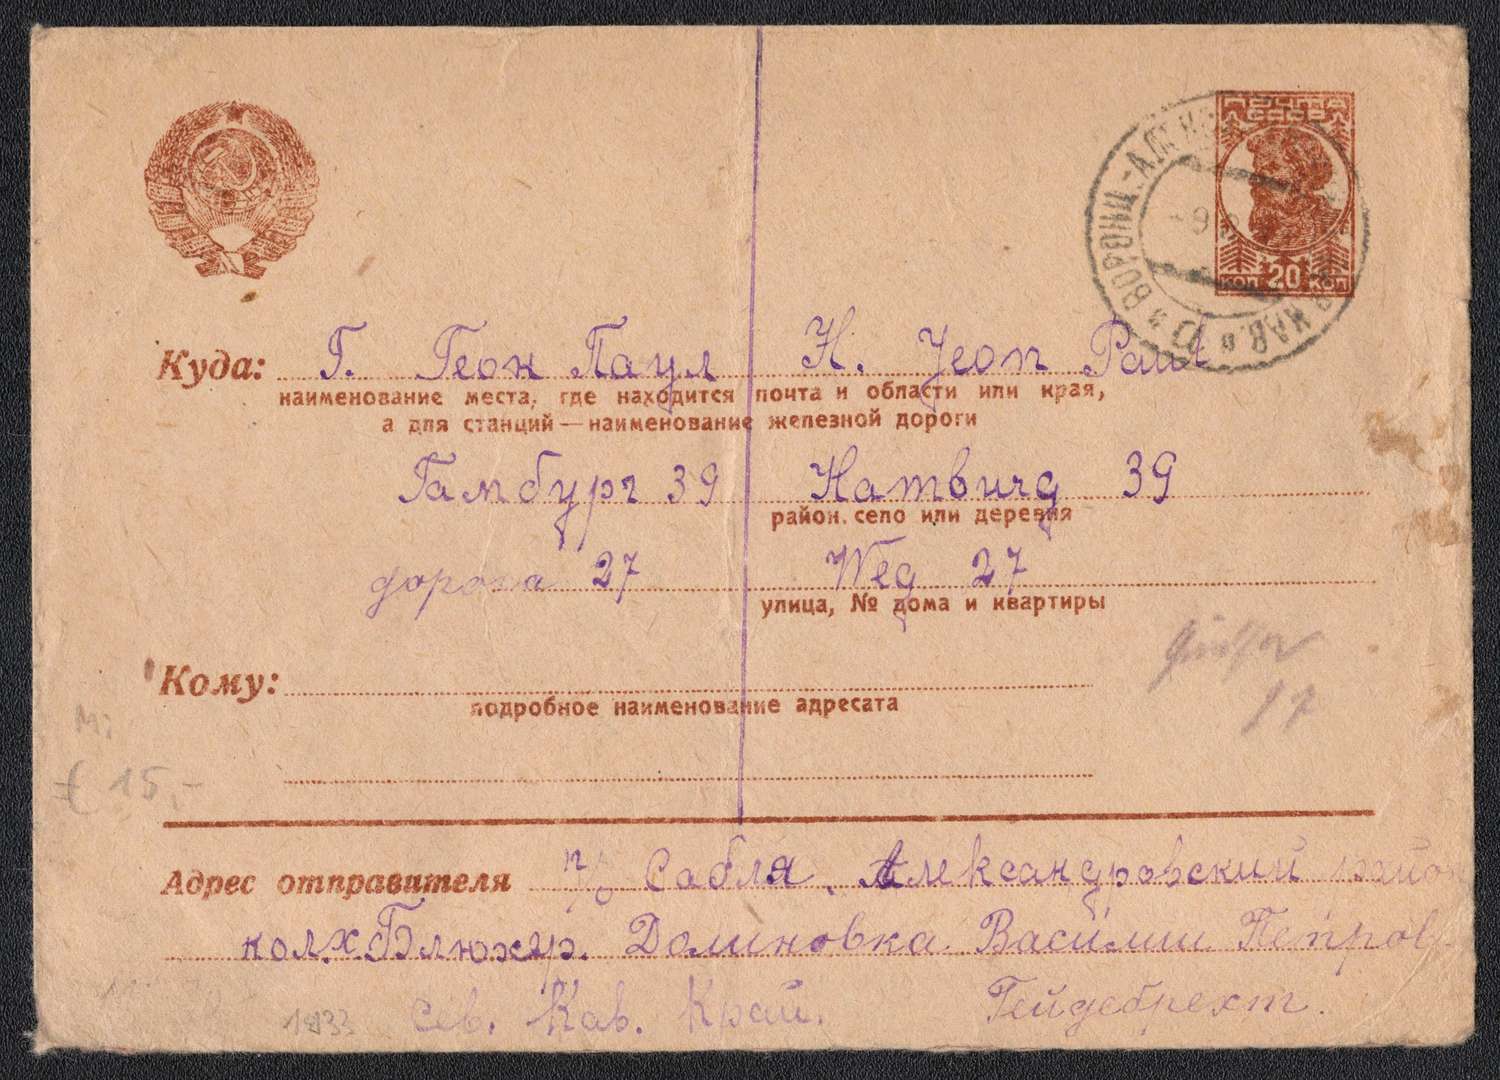 ПОЧТА
СССР
КОП 20 КОП
Куда: Г. Геон Паул H. Jeon Paul
наименование места, где находится почта и области или края,
а для станций — наименование железной дороги
Гамбург 39 Hamburg 39
район, село или деревня
дорога 27 Weg 27
улица, № дома и квартиры
Кому:
подробное наименование адресата
€ 15,-
Адрес отправителя п/о Сабля, Александровский район
колх. Блюхер. Долиновка Василии Петров
1933 Сев. Кав. Край. Гейдебрехт.